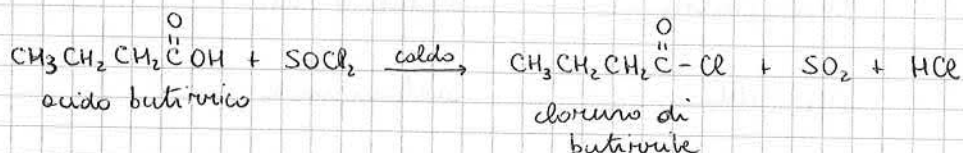 O O
CH3CH2CH2C̈OH + SOCl2 caldo→ CH3CH2CH2C̈-Cl + SO2 + HCl
acido butirrico
cloruro di
butirrile